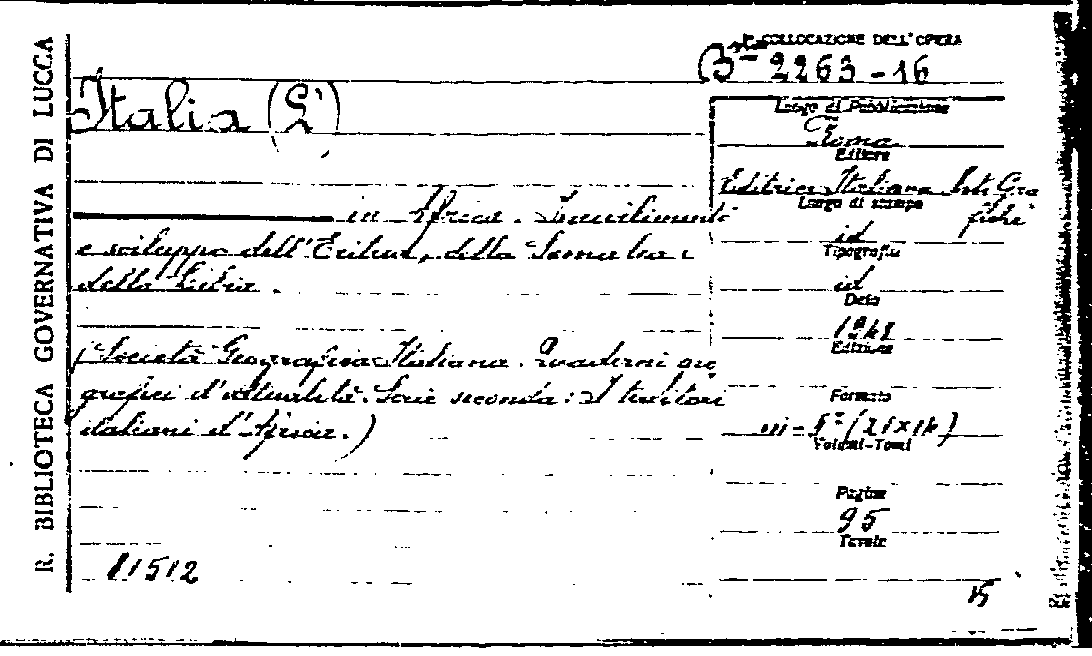 R. BIBLIOTECA GOVERNATIVA DI LUCCA
COLLOCAZIONE DELL'OPERA
Bta 2263-16
Italia (L')
in Africa. Incivilimento
e sviluppo dell'Eritrea, della Somalia e
della Libia.
(Società Geografica Italiana. Quaderni geo
grafici d'attualità. Serie seconda: I territori
italiani d'Africa.)
11512
Luogo di Pubblicazione
Roma
Editore
Editrice Italiana Arti Gra
fiche
Luogo di stampa
id
Tipografia
id
Data
1948
Edizione
Formato
in-8° (21x14)
Volumi-Tomi
Pagine
95
Tavole